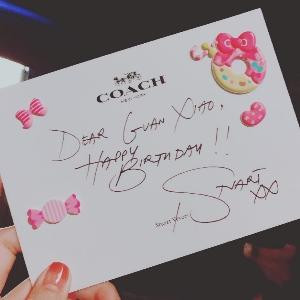 COACH
NEW YORK
DEAR GUAN XIAO,
HAPPY
BIRTHDAY!!
STUART
XX
Stuart Vevers